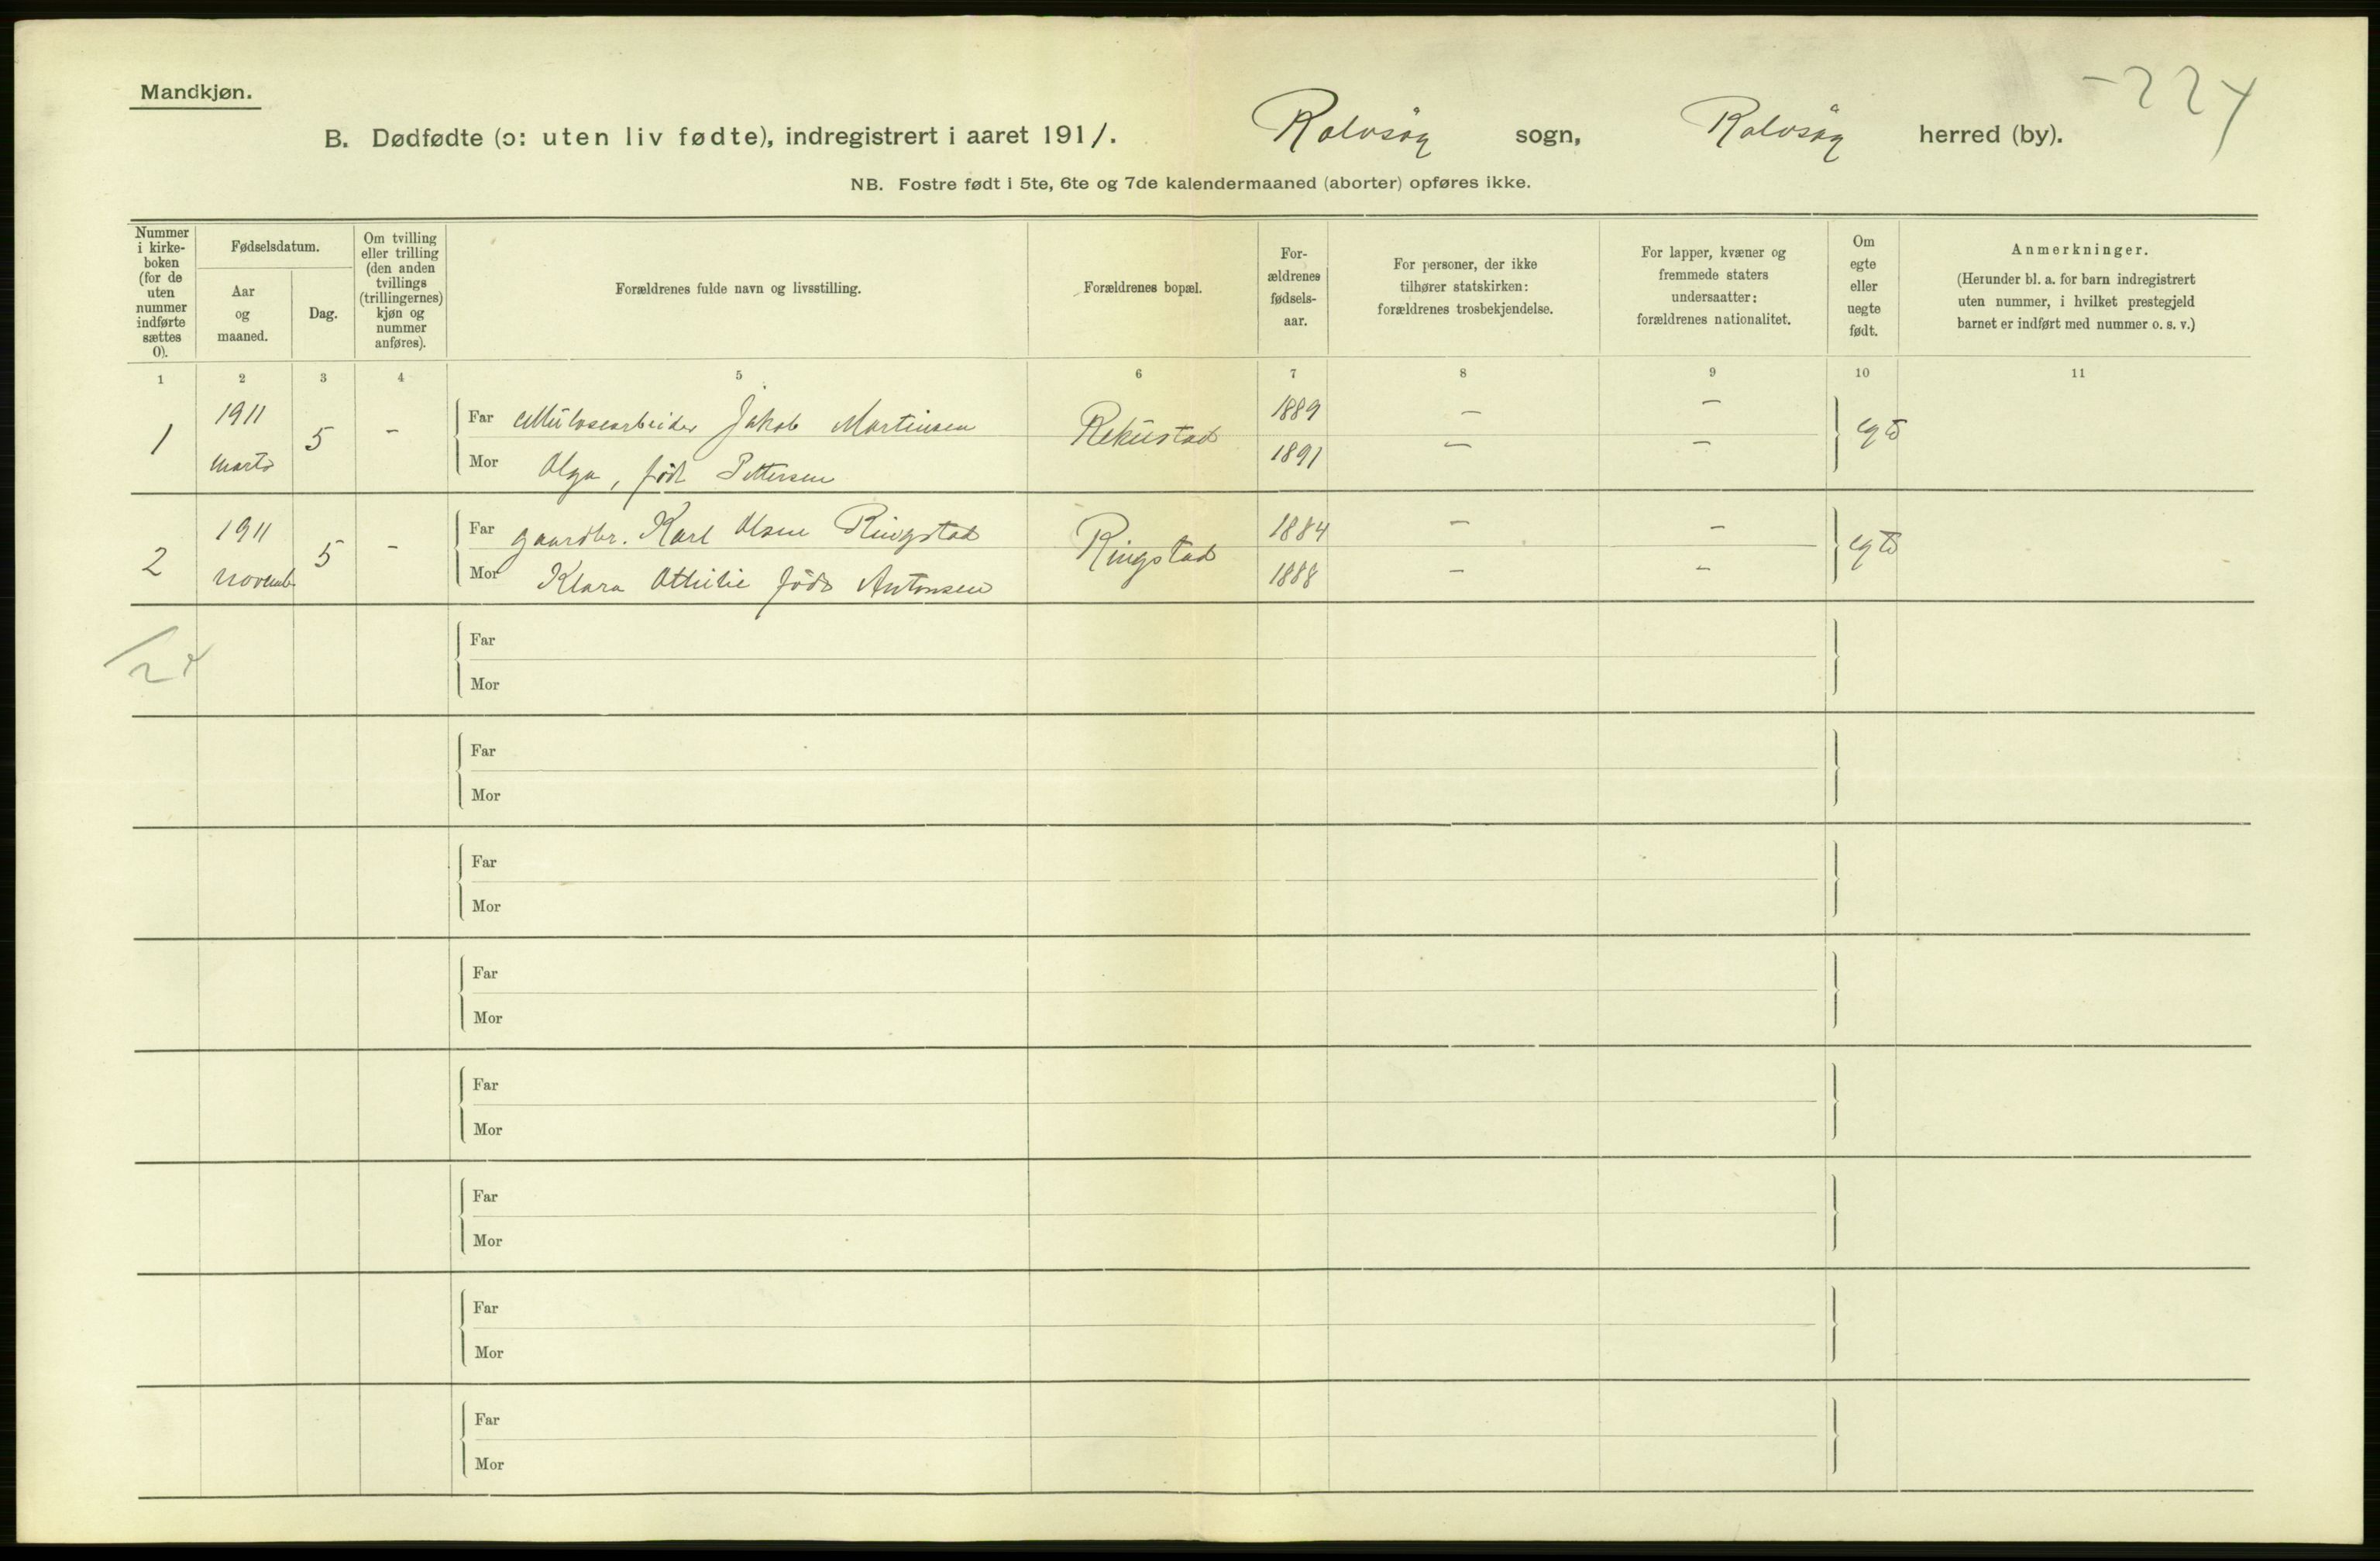 Mandkjøn.
-224
B. Dødfødte (ɔ: uten liv fødte), indregistrert i aaret 1911. Rolvsøy sogn, Rolvsøy herred (by).
NB. Fostre født i 5te, 6te og 7de kalendermaaned (aborter) opføres ikke.
Nummer i kirke-boken (for de uten nummer indførte sættes 0).
Fødselsdatum.
Aar og maaned.
Dag.
Om tvilling eller trilling (den anden tvillings (trillingernes) kjøn og nummer anføres).
Forældrenes fulde navn og livsstilling.
Forældrenes bopæl.
For-ældrenes fødsels-aar.
For personer, der ikke tilhører statskirken: forældrenes trosbekjendelse.
For lapper, kvæner og fremmede staters undersaatter: forældrenes nationalitet.
Om egte eller uegte født.
Anmerkninger.
(Herunder bl. a. for barn indregistrert uten nummer, i hvilket prestegjeld barnet er indført med nummer o. s. v.)
1 2 3 4 5 6 7 8 9 10 11
1 1911 marts 5 – Far Jakob Martinsen Rekustad 1889 – – egte
Mor Olga, født Pettersen 1891 – –
2 1911 novemb. 5 – Far gaardbr. Karl Olsen Ringstad Ringstad 1884 – – egte
Mor Klara Othilie født Antonsen 1888 – –
Far
Mor
Far
Mor
Far
Mor
Far
Mor
Far
Mor
Far
Mor
Far
Mor
Far
Mor